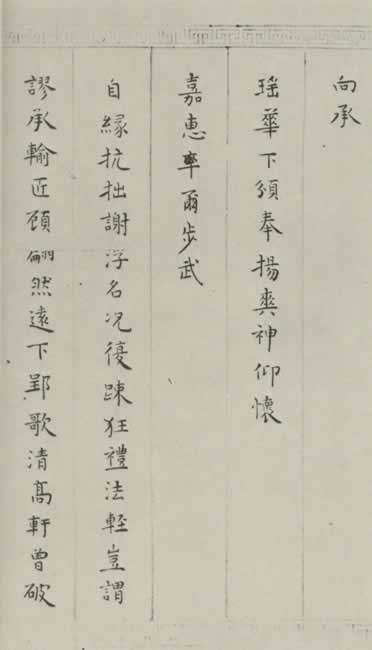 向承
瑶華下頒奉揚爽神仰懷
嘉惠率爾步武
自緣抗拙謝浮名况復踈狂禮法輕豈謂
謬承輸匠顧翩然遠下郢歌清高軒曾破